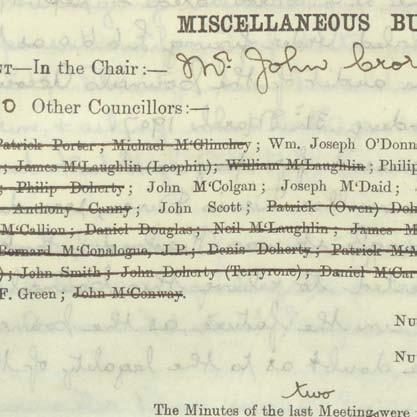 MISCELLANEOUS BU
NT—In the Chair:— Mr. John Cro
O Other Councillors:—
Patrick Porter; Michael M'Glinchey; Wm. Joseph O'Donn
; James M'Laughlin (Leophin); William M'Laughlin; Philip
; Philip Doherty; John M'Colgan; Joseph M'Daid;
Anthony Canny; John Scott; Patrick (Owen) Doh
M'Callion; Daniel Douglas; Neil M'Laughlin; James M
Bernard M'Conalogue, J.P.; Denis Doherty; Patrick M'M
); John Smith; John Doherty (Terryrone); Daniel M'Car
F. Green; John M'Conway.
NU
NU
two
The Minutes of the last Meeting were